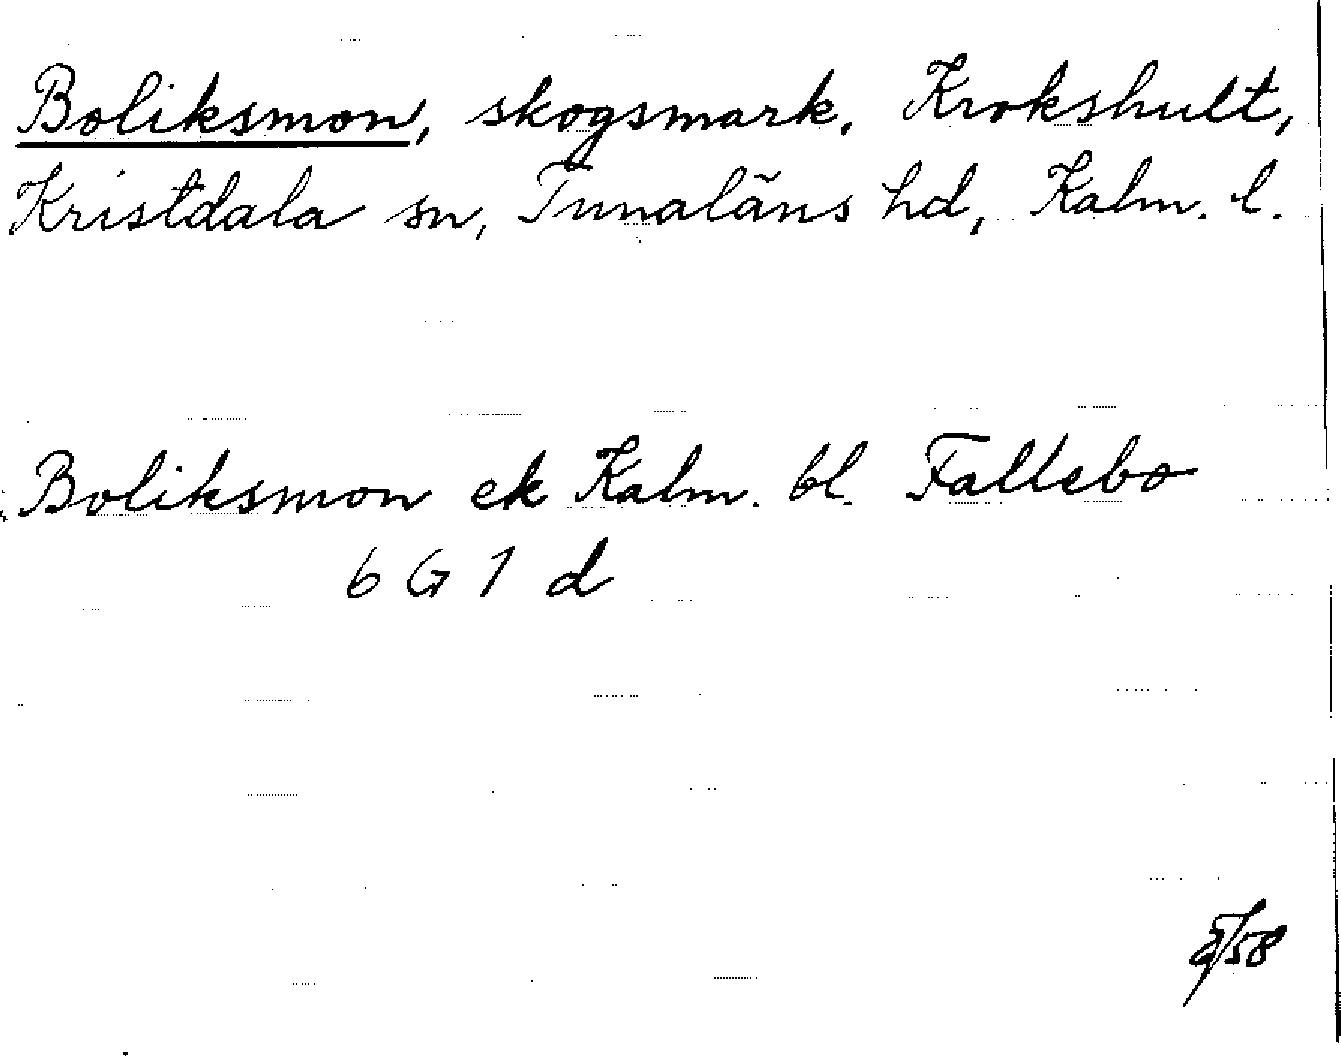 Boliksmon, skogsmark, Krokshult,
Kristdala sn, Tunaläns hd, Kalm. l.
Boliksmon ek Kalm. bl. Fallebo
6 G 1 d